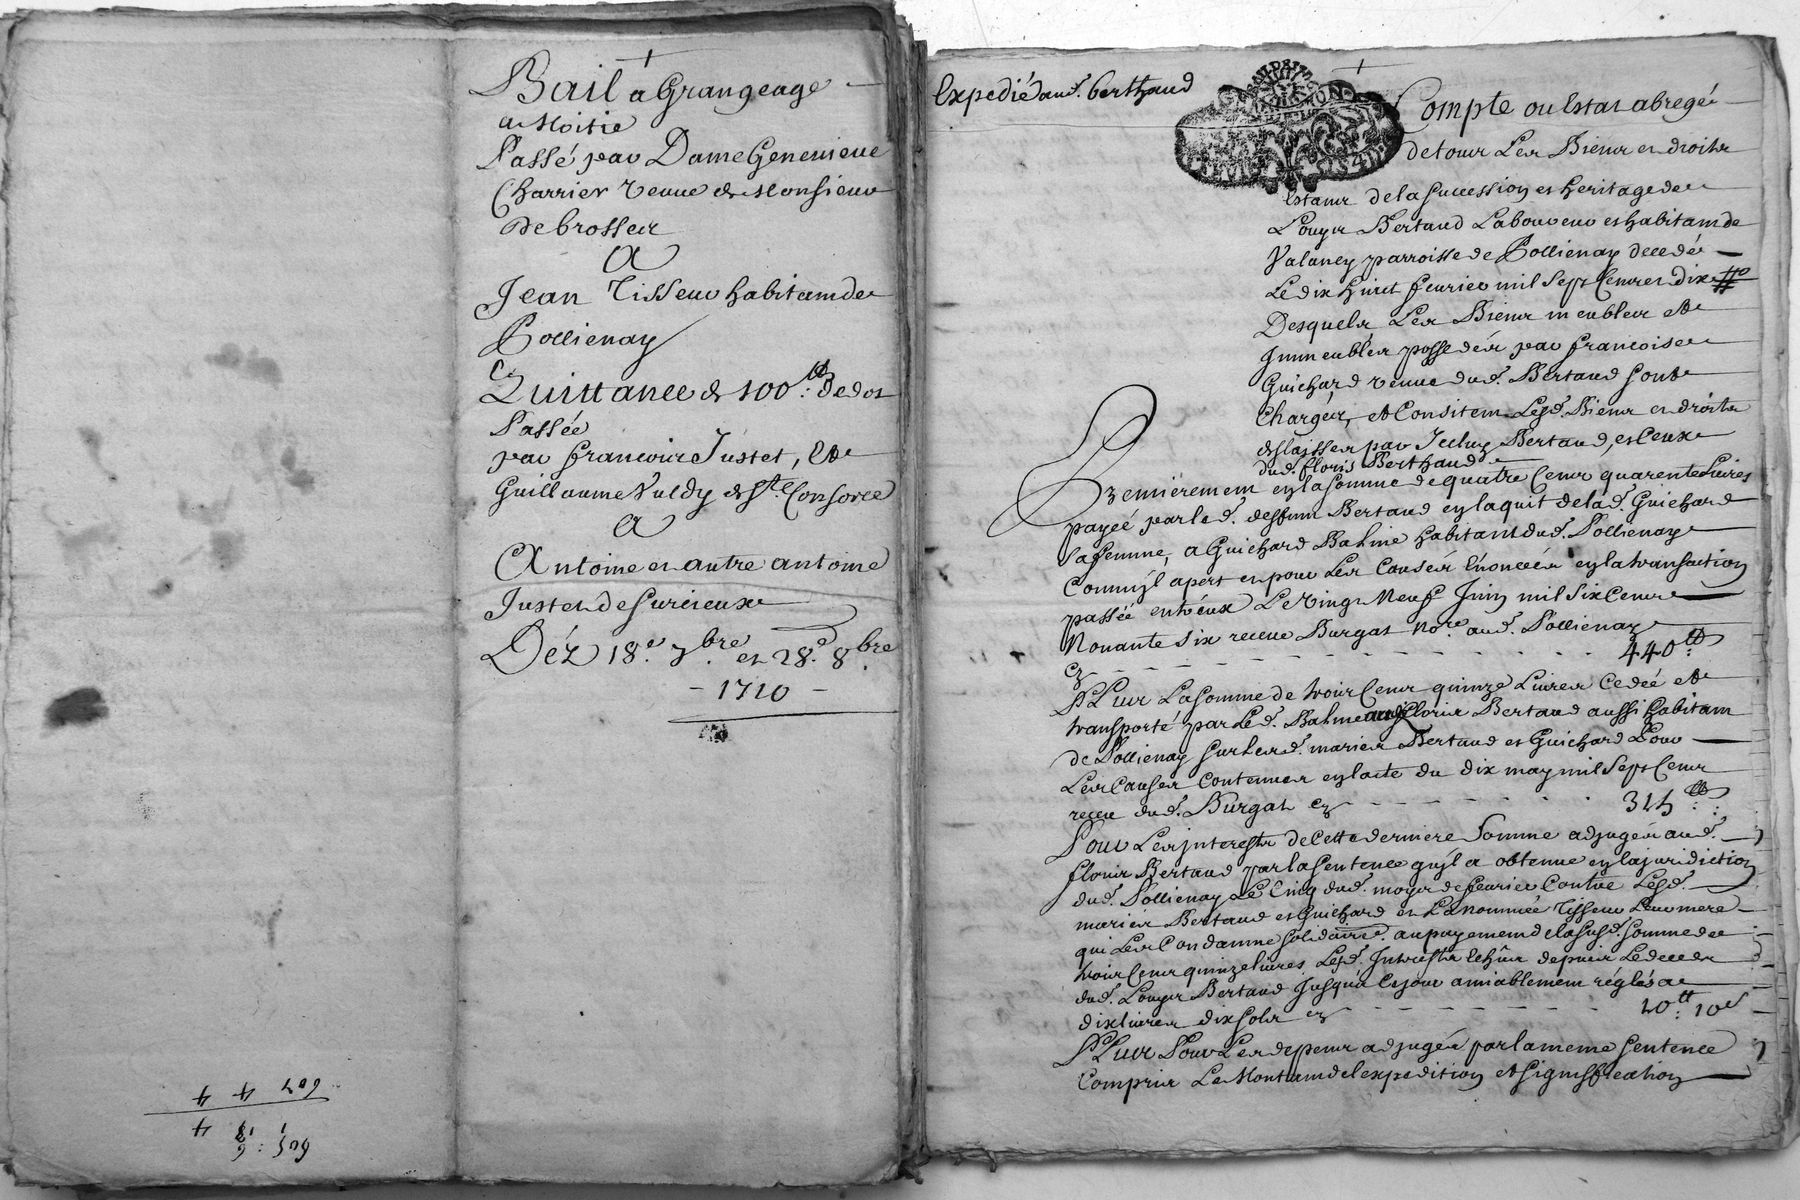 Bail a Grangeage
a Moitie
Passé par Dame Genevieue
Charrier veuue de Monsieur
De brosses
A
Jean Tisseur habitant de
Pollienay
Quittance de 100 ₶ de dot
Passée
par francois Justet, Et
Guillaume Valdy de Ste Consorce
A
Antoine et autre antoine
Justet de Surcieux
Déz 18e 7bre et 28e 8bre
- 1710 -
Expedié aud. berthaud
Compte ou Estat abregé
de tous Les Biens et droits
Estant de la succession et heritage de
Louys Bertaud Laboureur et habitant de
Valancy parroisse de Pollienay decedé
Le dix huict feurier mil sept Cents dix
Desquels Les Biens meubles et
Immeubles possedés par francoise
Guichard veuue dud. Bertaud sont
Chargés, et Consistent Lesd. Biens et droits
delaissés par Icelluy Bertaud, et Ceux
dud. floris Berthaud
Premierement en la somme de quatre Cens quarente Liures
payée par led. deffunt Bertaud en laquit de lad. Guichard
sa femme, a Guichard Balme habitant dud. Pollienay
Comm'jl apert et pour Les Causes Enoncées en la transaction
passée entr'eux Le vingt Neuf Juin mil six Cents
Nonante six receue Burgat Nore aud. Pollienay
Cy 440 ₶
Plus La somme de trois Cens quinze Liures Cedée et
transporté par Led. Balme aud. floris Bertaud aussi habitant
de Pollienay sur lesd. mariés Bertaud et Guichard Pour
Les Causes Contenues en lacte du dix may mil Sept Cens
receu dud. Burgat Cy 315 ₶
Pour Les jnterests de Cette derniere somme adjugés aud.
floris Bertaud par la sentence qu'jl a obtenue en la juridiction
dud. Pollienay Le Cinq dud. moys de feurier Contre Lesd.
mariés Bertaud et Guichard et La nommée Tisseur Leur mere
qui Les Condamne solidaire. au payement de la susd. somme de
trois Cens quinze liures Lesd. Jnterests Echûs depuis Le deces
dud. Louys Bertaud Jusqu'a Ce jour amiablement réglés a
dix liures dix sols Cy 10 ₶ 10 s
Plus Pour Les depens adjugés par la meme sentence
Compris Le Montant de lexpedition et signiffication